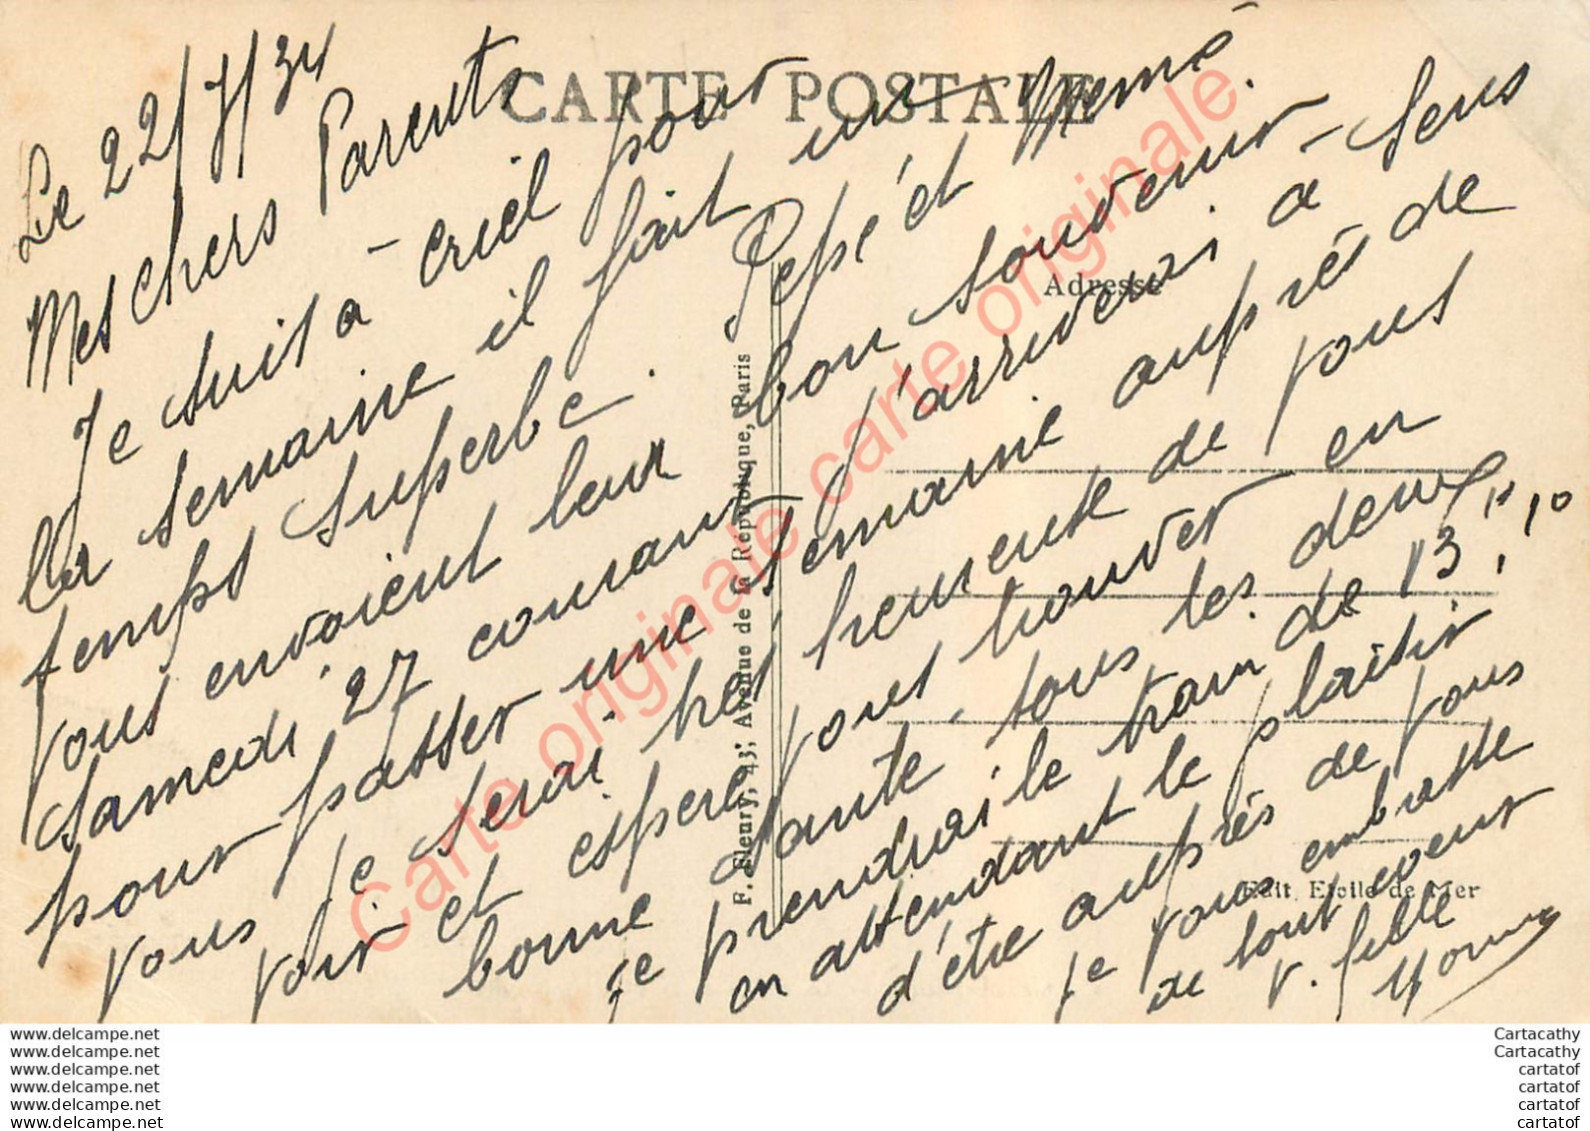 CARTE POSTALE
Le 22/7/34
Mes chers Parents
Je suis à - criel pour
la semaine il fait un
temps superbe. Pepé et Memé
vous envoient leur bon souvenir.
Samedi 27 courant j'arriverai à - Sens
pour passer une semaine auprès de
vous je serai heureuse de vous
voir et espere vous trouver en
bonne santé, tous les deux
je prendrai le train de 13 10
en attendant le plaisir
d'être auprès de vous
je vous embrasse
de tout coeur
V. fille
Adresse
F. Fleury, 43, Avenue de la République, Paris
Edit Etoile de Mer
Carte originale carte originale
Carte originale
www.delcampe.net
www.delcampe.net
www.delcampe.net
www.delcampe.net
www.delcampe.net
www.delcampe.net
Cartacathy
Cartacathy
cartatof
cartatof
cartatof
cartatof